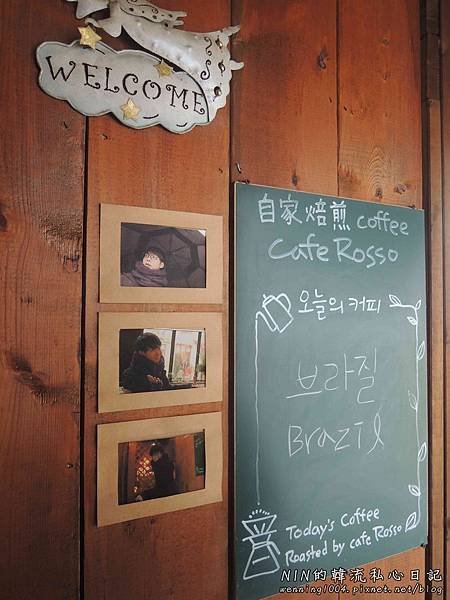 WELCOME
自家焙煎 coffee
Cafe Rosso
오늘의 커피
브라질
Brazil
Today's Coffee
Roasted by cafe Rosso
NIN的韓流私心日記
wenning1004.pixnet.net/blog